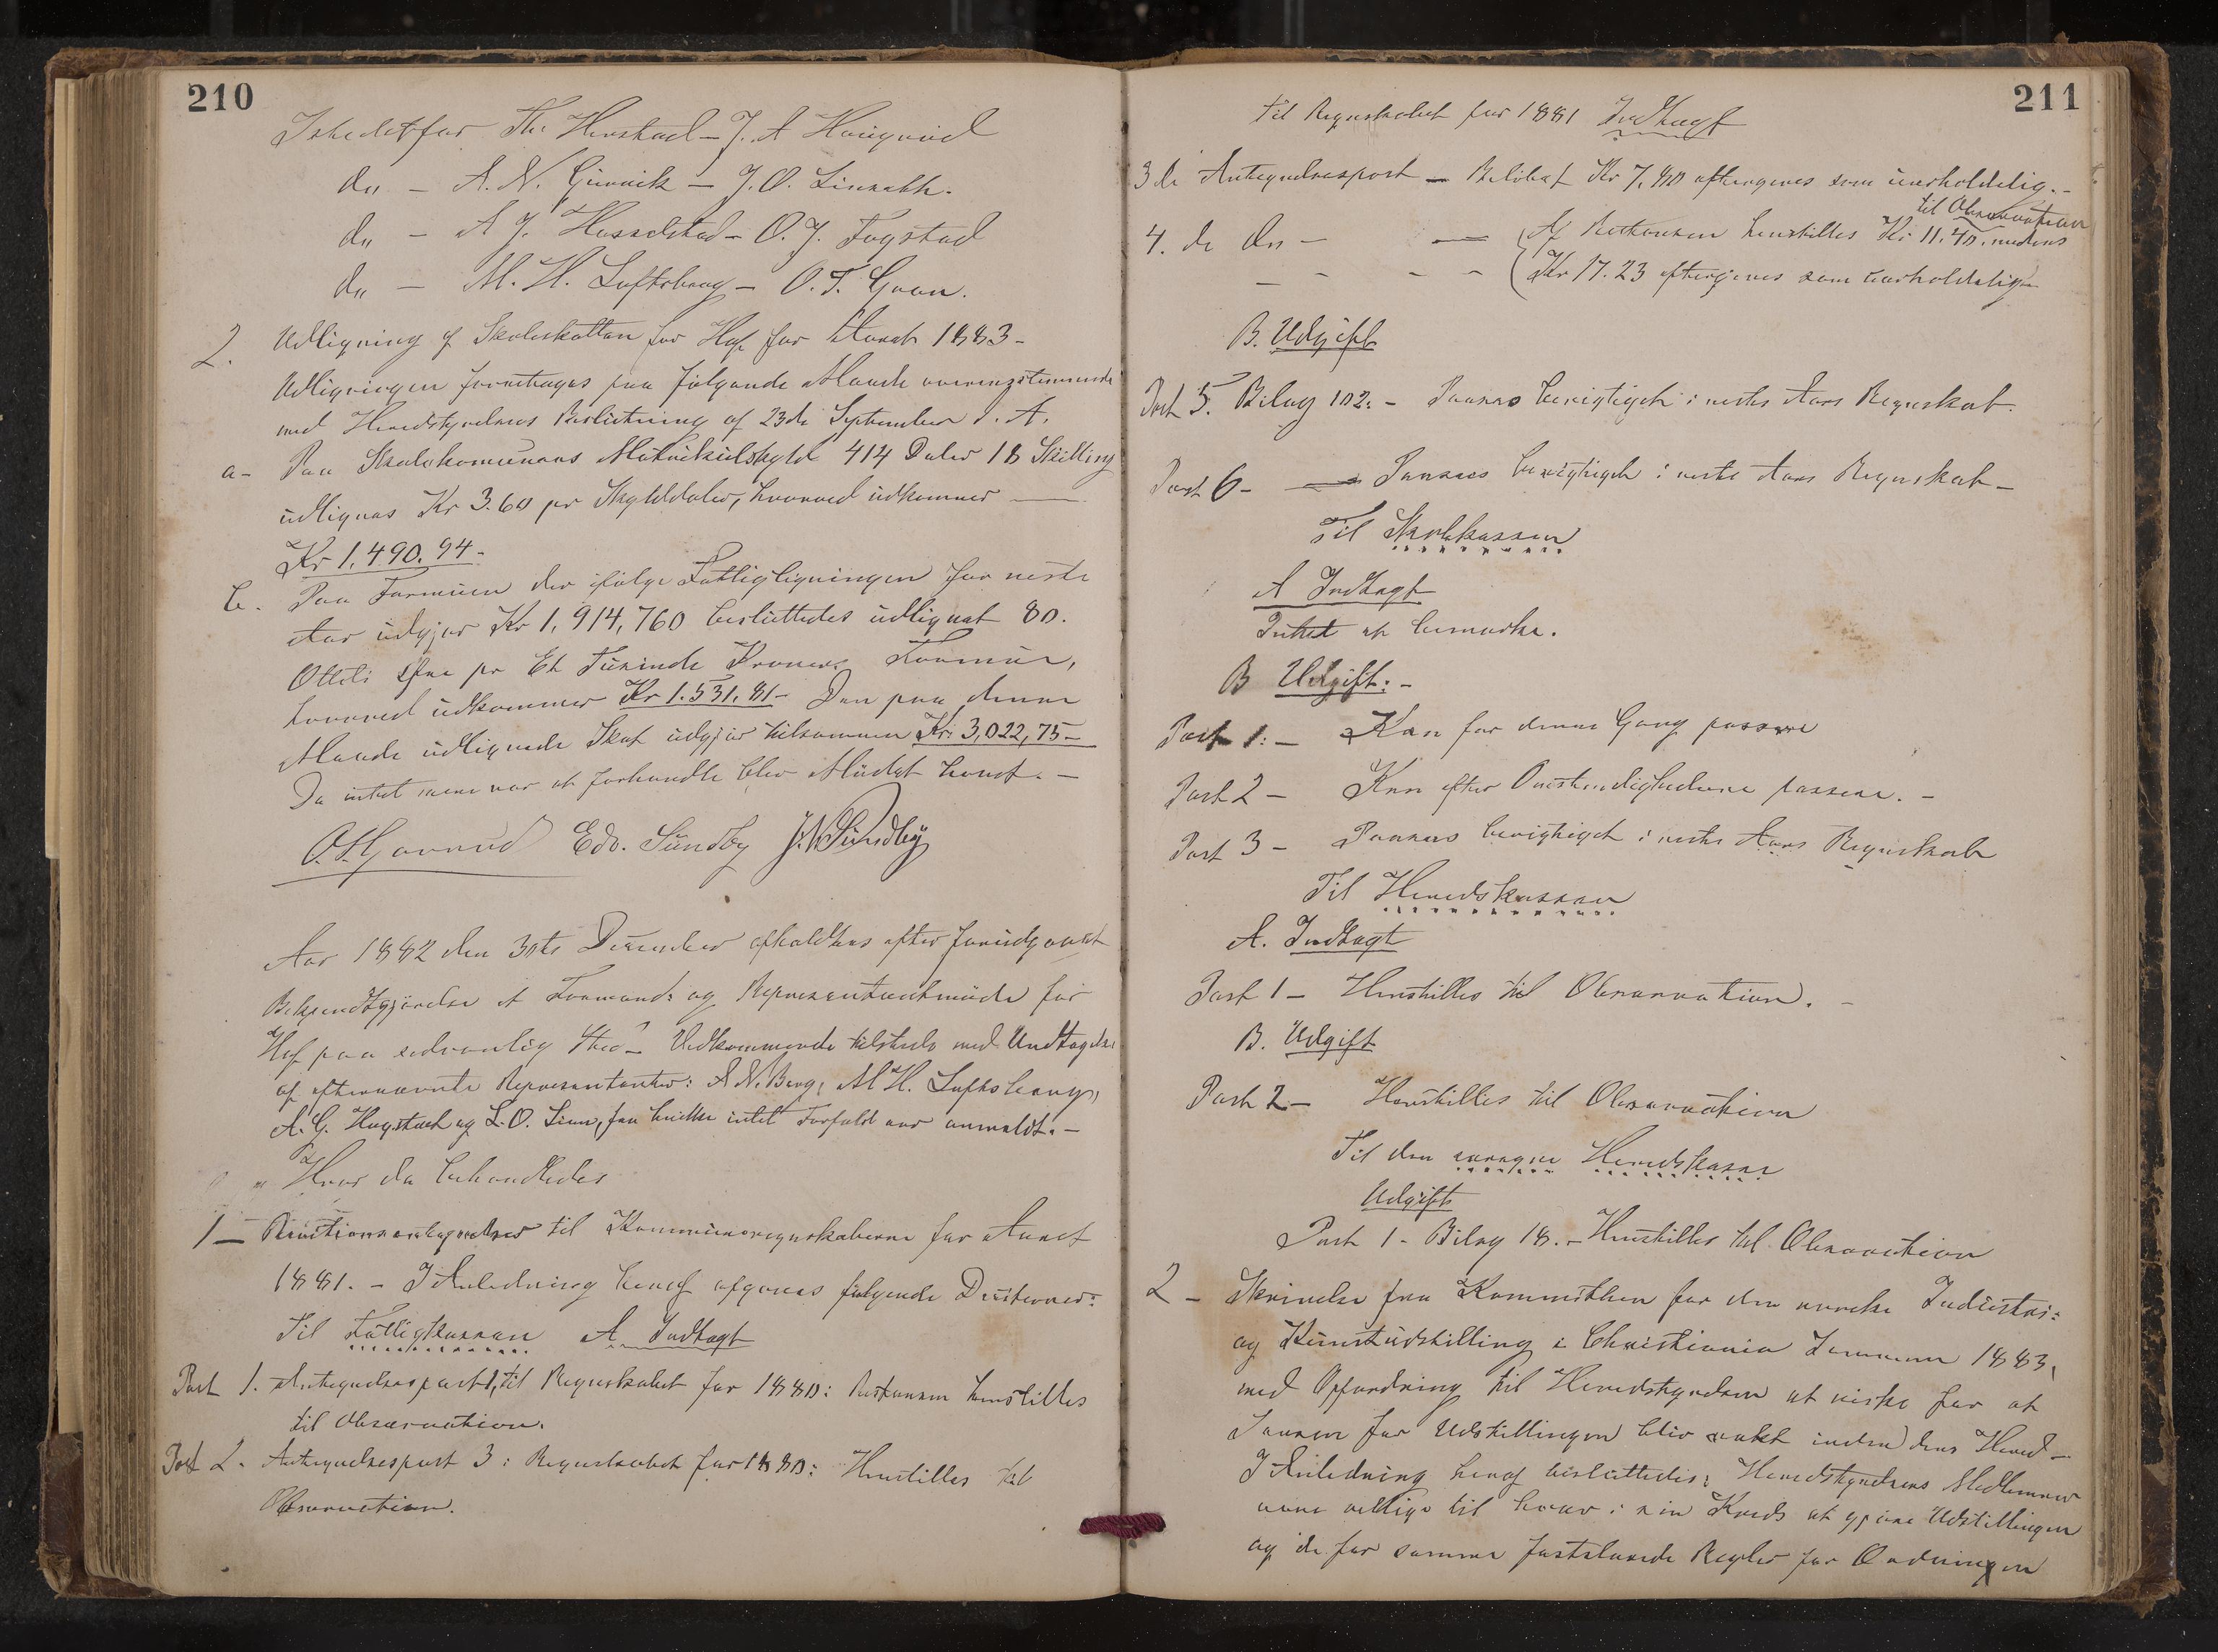 210
Istedetfor Chr Hvostad – J. A Haugerud
do – A. N. – J. O. Linnæth.
do – A J. Hasselstad – O. J. Fogstad
do – M. H. Luftsberg – O. T. Goon.
2. Udligning af Skoleskatten for Hof for Aaret 1883 –
Udligningen foretages paa følgende Maade overensstemmende
med Heredstyrelsens Beslutning af 23de September d. A.
a – Paa Skolekomunens Matrikulskyld 414 Daler 18 Skilling
udlignes Kr 3.60 pr Skylddaler, hvorved udkommer —
Kr 1,490.94 –
b. Paa Formuen der ifølge Fattigligningen for neste
Aar udgjør Kr 1,914,760 besluttedes udlignet 80.
Otteti Øre pr Et Tusinde Kroners Formue,
hvorved udkommer Kr 1.531.81 – Den paa denne
Maade udlignede Skat udgjør tilsammen Kr. 3,022,75 –
Da intet mere var at forhandle blev Mødet hævet. –
Edv. Sundby J. N. Sundby
Aar 1882 den 30te December afholdtes efter forudgaaet
Bekjendtgjørelse et Formands og Representantmøde for
Hof paa sedvanlig Sted – Vedkommende tilstede med Undtagelse
af efternævnte Representanter: A. N. Berg, M. H. Luftsberg,
A. G. Hagstad og L. O. Linn, fra hvilke intet Forfald var anmeldt. –
Hvor da behandledes
1 – Revisionsantegnelser til Kommuneregnskaberne for Aaret
1881. – I Anledning heraf afgaves følgende Decisioner:
Til Fattigkassen A Indtægt
Post 1. Antegnelsespost 1, til Regnskabet for 1880: Restansen henstilles
til Observation.
Post 2. Antegnelsespost 3 i Regnskabet for 1880: Henstilles til
Observation.
211
til Regnskabet for 1881 Indtægt
3de Antegnelsespost – Beløbet Kr 7.80 eftergives som uerholdelig. –
til Observation
4. de do – — Af Restansen henstilles Kr 11.40. medens
– – – – Kr 17.23 eftergives som uerholdelig –
B. Udgift
Post 5. Bilag 102: – Paasees berigtiget i neste Aars Regnskab.
Post 6 – — Paasees berigtiget i neste Aars Regnskab –
Til Skolekassen
A Indtægt
Intet at bemærke.
B Udgift: –
Post 1: – Kan for denne Gang passere
Post 2 – Kan efter Omstendighederne passere. –
Post 3 – Paasees berigtiget i neste Aars Regnskab
Til Heredskassen
A. Indtægt
Post 1 – Henstilles til Observation. –
B. Udgift
Post 2 – Henstilles til Observation
Til den Heredskasse
Udgift
Post 1 – Bilag 18. – Henstilles til Observation
2 – Skrivelse fra Kommitheen for den norske Industri:
og Kunstudstilling i Christiania Sommeren 1883,
med Opfordring til Heredstyrelsen at virke for at
Sansen for Udstillingen bliver vakt inden dens Hered –
I Anledning heraf besluttedes: Heredstyrelsens Medlemmer
være villige til hver i sin Kreds at gjøre Udstillingen
og de for samme fastslaaede Regler for Ordningen